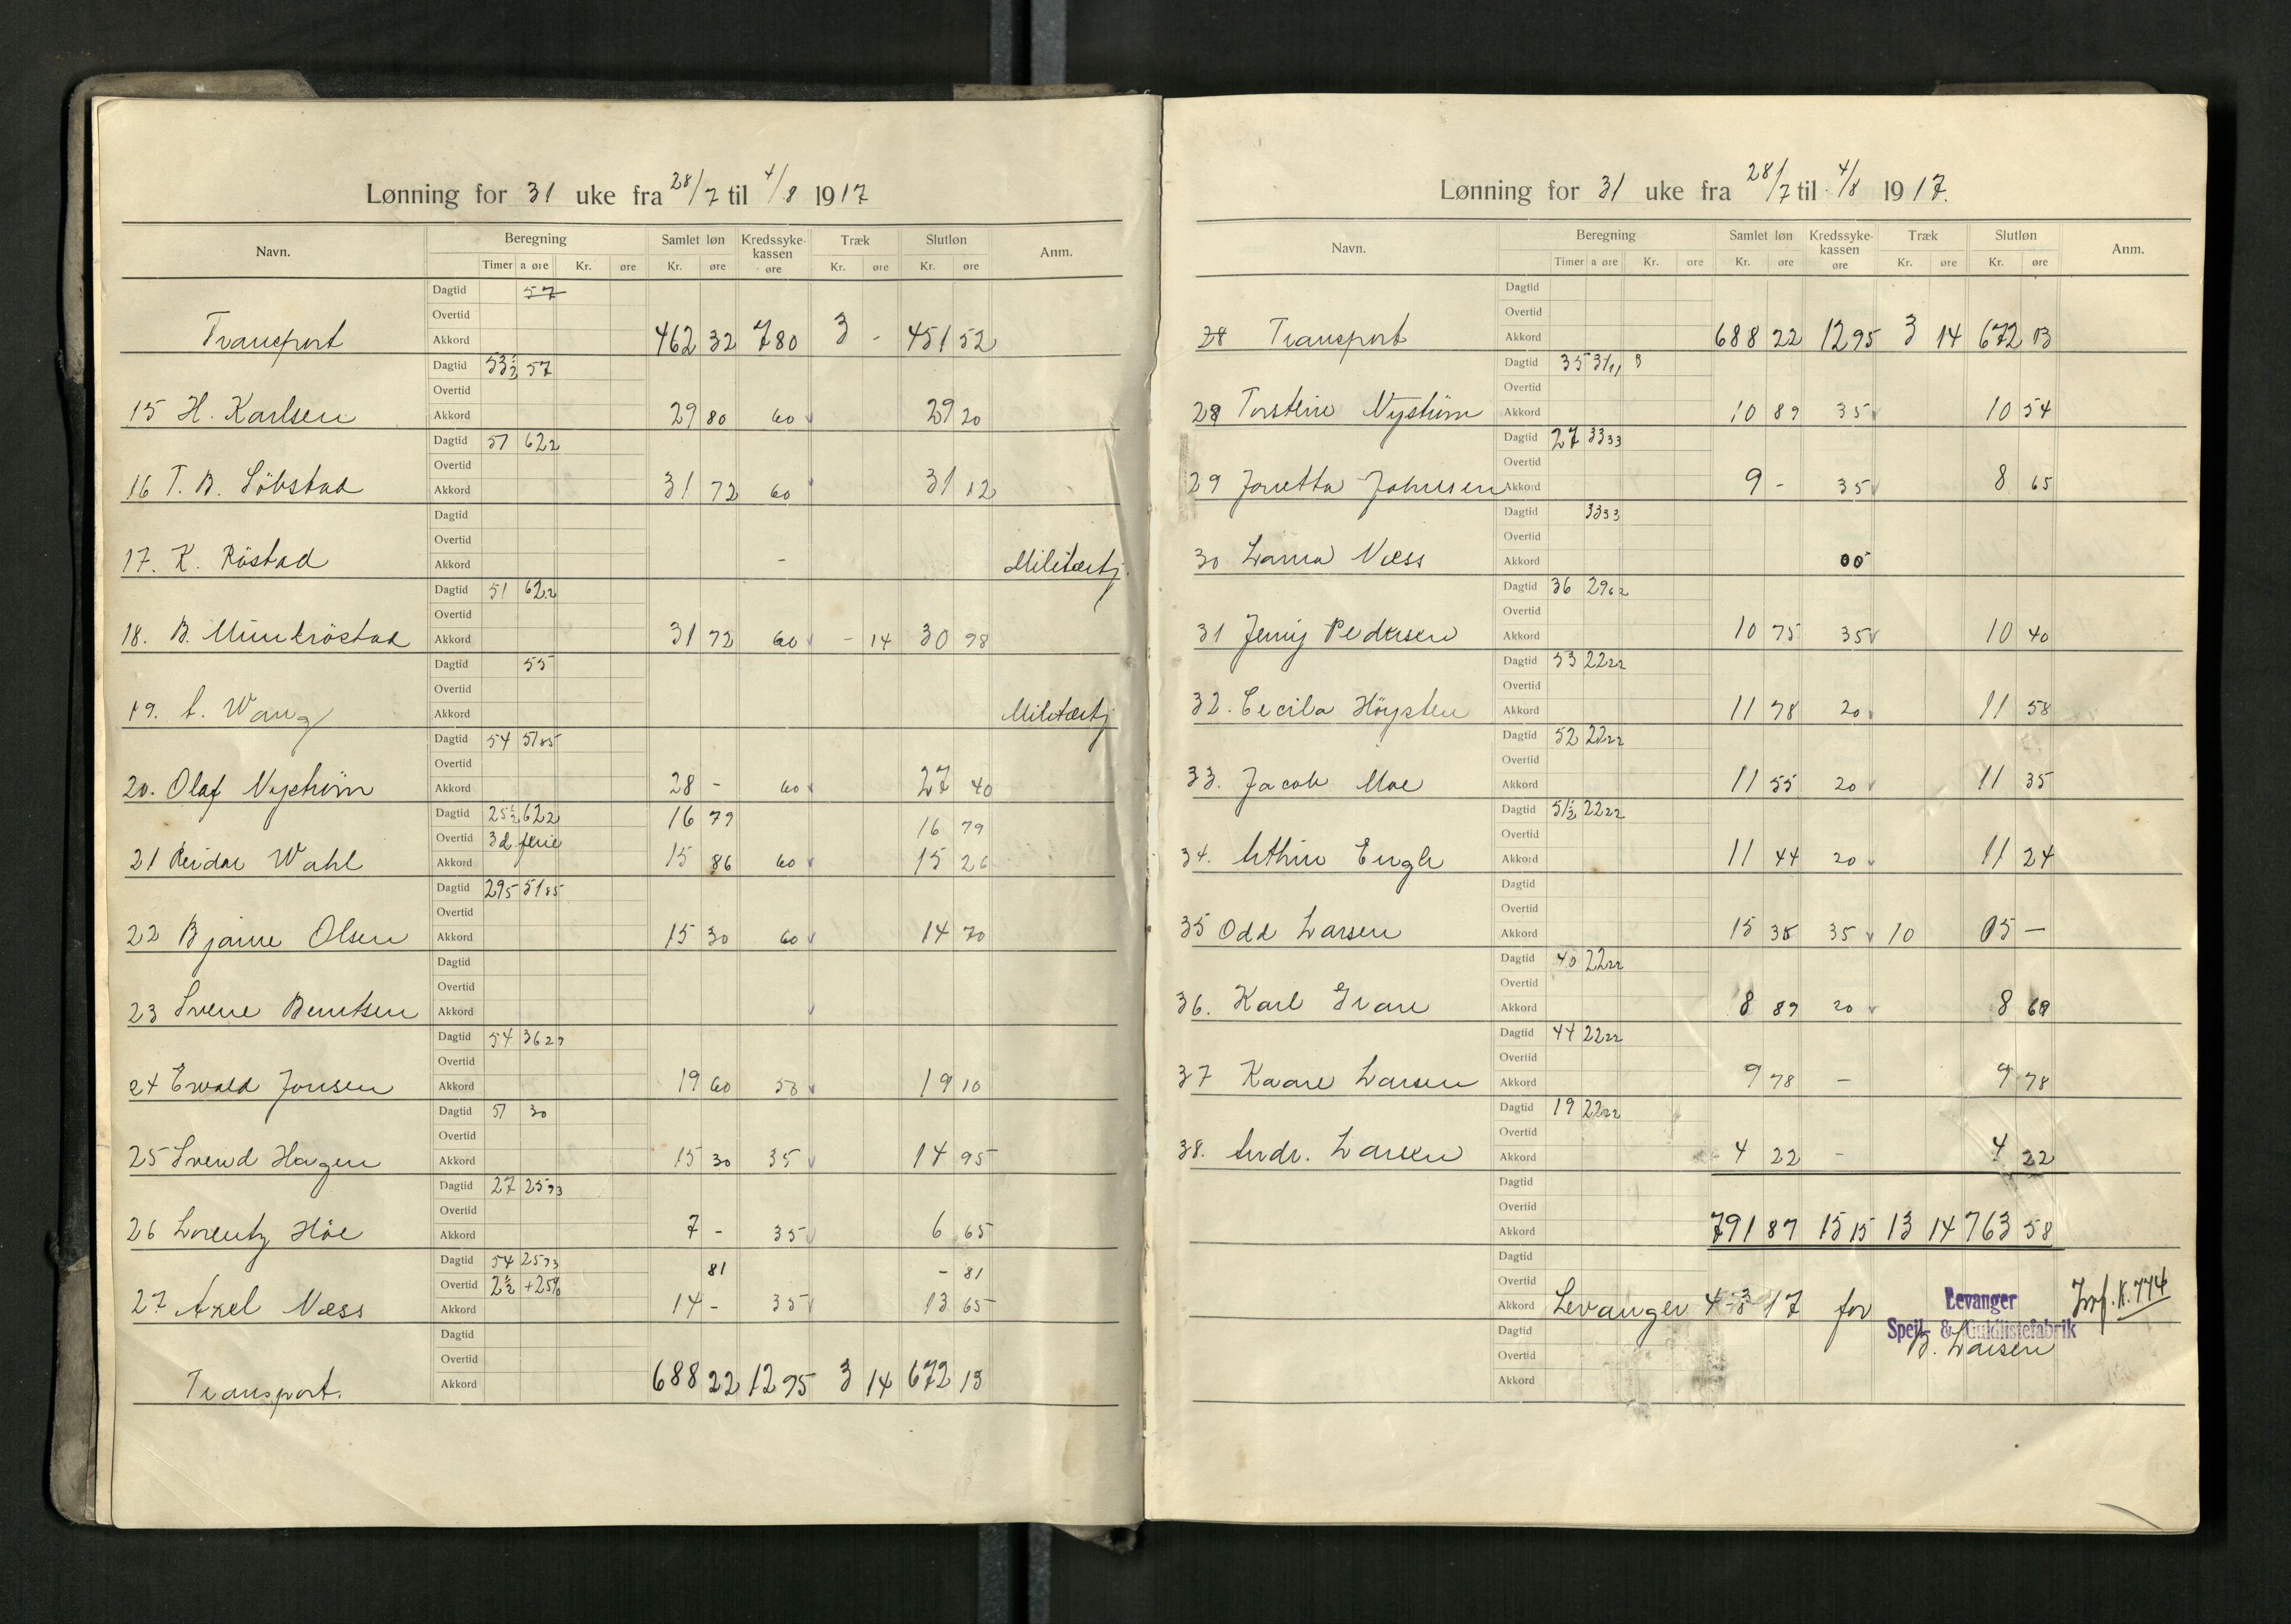 Lønning for 31 uke fra 28/7 til 4/8 1917
Navn. Beregning Samlet løn Kredssyke- Træk Slutløn Anm.
kassen
Timer a øre Kr. øre Kr. øre øre Kr. øre Kr. øre
Dagtid 57
Overtid
Transport Akkord 462 32 780 3 - 451 52
Dagtid 53½ 57
Overtid
15 H. Karlsen Akkord 29 80 60 29 20
Dagtid 51 622
Overtid
16 T. B. Söbstad Akkord 31 72 60 31 12
Dagtid
Overtid
17. K. Röstad Akkord - Militærtj.
Dagtid 51 622
Overtid
18. B. Munkröstad Akkord 31 72 60 - 14 30 98
Dagtid 55
Overtid
19. Wang Akkord Militærtj
Dagtid 54 5185
Overtid
20. Olaf Nyström Akkord 28 - 60 27 40
Dagtid 25½ 622 16 79 16 79
Overtid 3 d. ferie
21 Reidar Wahl Akkord 15 86 60 15 26
Dagtid 295 5185
Overtid
22 Bjarne Olsen Akkord 15 30 60 14 70
Dagtid
Overtid
23 Sverre Berntsen Akkord
Dagtid 54 3629
Overtid
24 Ewald Jonsen Akkord 19 60 50 19 10
Dagtid 51 30
Overtid
25 Svend Hagen Akkord 15 30 35 14 95
Dagtid 27 2593
Overtid
26 Lorentz Höe Akkord 7 - 35 6 65
Dagtid 54 2593 81 - 81
Overtid 2½ +25%
27 Axel Næss Akkord 14 - 35 13 65
Dagtid
Overtid
Transport. Akkord 688 22 12 95 3 14 672 13
Lønning for 31 uke fra 28/7 til 4/8 1917.
Navn. Beregning Samlet løn Kredssyke- Træk Slutløn Anm.
kassen
Timer a øre Kr. øre Kr. øre øre Kr. øre Kr. øre
Dagtid
Overtid
28 Transport Akkord 688 22 12 95 3 14 672 13
Dagtid 35 3111
Overtid
28 Torstein Nyström Akkord 10 89 35 10 54
Dagtid 27 3333
Overtid
29 Jonetta Johnsen Akkord 9 - 35 8 65
Dagtid 3333
Overtid
30 Næss Akkord 00
Dagtid 36 2962
Overtid
31 Jenny Pedersen Akkord 10 75 35 10 40
Dagtid 53 2222
Overtid
32. Cecilia Höysten Akkord 11 78 20 11 58
Dagtid 52 2222
Overtid
33. Jacob Moe Akkord 11 55 20 11 35
Dagtid 51½ 2222
Overtid
34. Akkord 11 44 20 11 24
Dagtid
Overtid
35 Odd Larsen Akkord 15 35 35 10 05 —
Dagtid 40 2222
Overtid
36. Karl Akkord 8 89 20 8 69
Dagtid 44 2222
Overtid
37 Kaare Larsen Akkord 9 78 — 9 78
Dagtid 19 2222
Overtid
38. Andr. Larsen Akkord 4 22 - 4 22
Dagtid
Overtid
Akkord 791 87 15 15 13 14 763 58
Dagtid
Overtid
Akkord Levanger 4-8 17 for Levanger K. 774
Dagtid Speil- & Guldlistefabrik
Overtid B. Larsen
Akkord